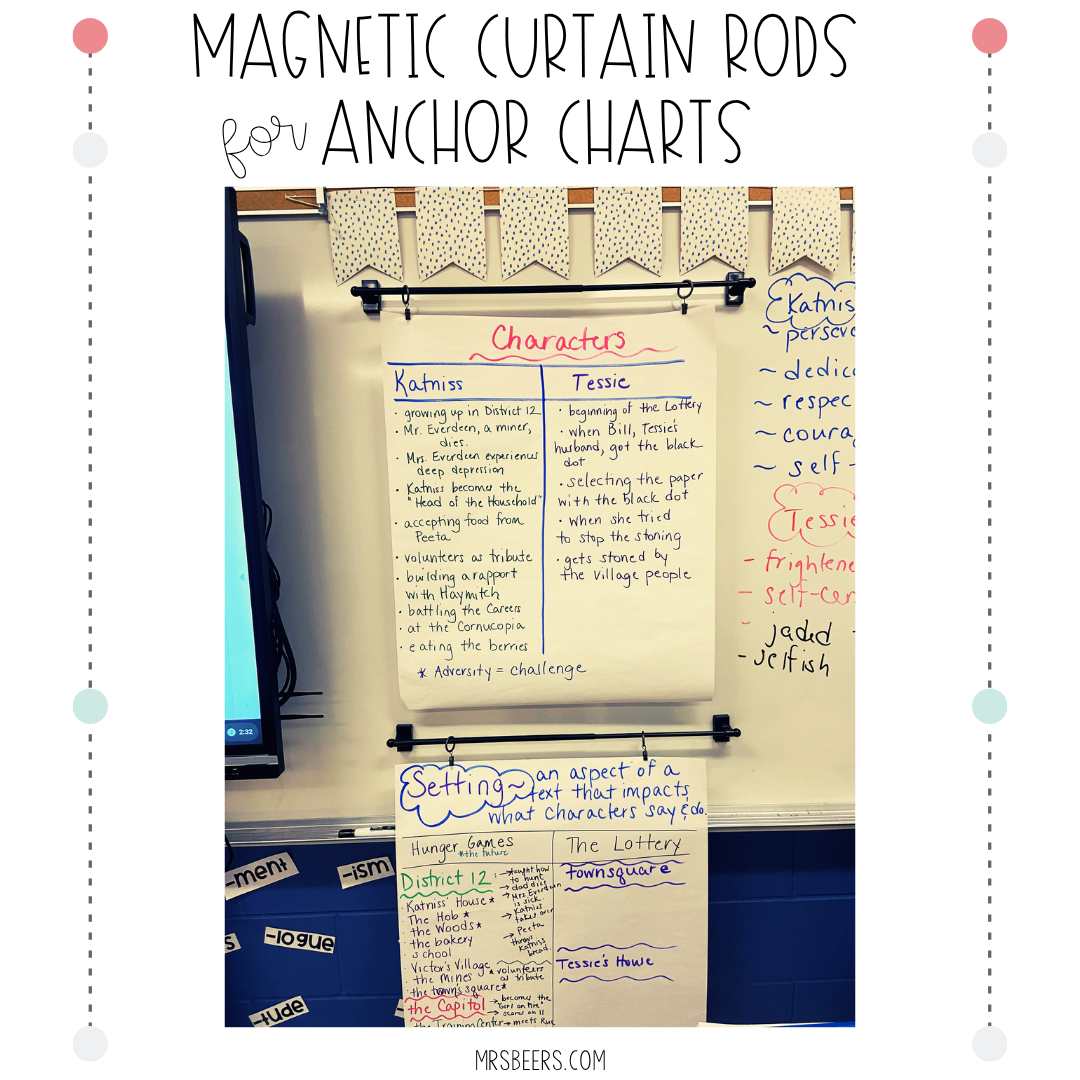 MAGNETIC CURTAIN RODS
for ANCHOR CHARTS
Characters
Katniss
· growing up in District 12
· Mr. Everdeen, a miner,
dies.
· Mrs. Everdeen experiences
deep depression
· Katniss becomes the
"Head of the Household"
· accepting food from
Peeta
· volunteers as tribute
· building a rapport
with Haymitch
· battling the Careers
· at the Cornucopia
· eating the berries
* Adversity = challenge
Tessie
· beginning of the Lottery
· when Bill, Tessie's
husband, got the black
dot
· selecting the paper
with the black dot
· when she tried
to stop the stoning
· gets stoned by
the village people
Katnis
~ perseve
~ dedic
~ respec
~ coura
~ self-
Tessie
- frightene
- self-cen
- jaded -
- selfish
2:32
Setting ~ an aspect of a
text that impacts
what characters say & do.
Hunger Games
*the future
District 12:
· Katniss' House*
· The Hob *
· the Woods*
· the bakery
· school
· Victor's Village
· the Mines
· the town's square*
the Capitol
· the Training Center → meets Rue
→ taught how
to hunt
→ dad dies
→ Mrs. Everdeen
is sick.
→ Katniss
takes over
→ Peeta
throws
Katniss
bread
* volunteers
as tribute
→ becomes the
"Girl on Fire"
→ scores an 11
The Lottery
Townsquare
Tessie's House
-ment
-ism
s
-logue
-tude
MRSBEERS.COM